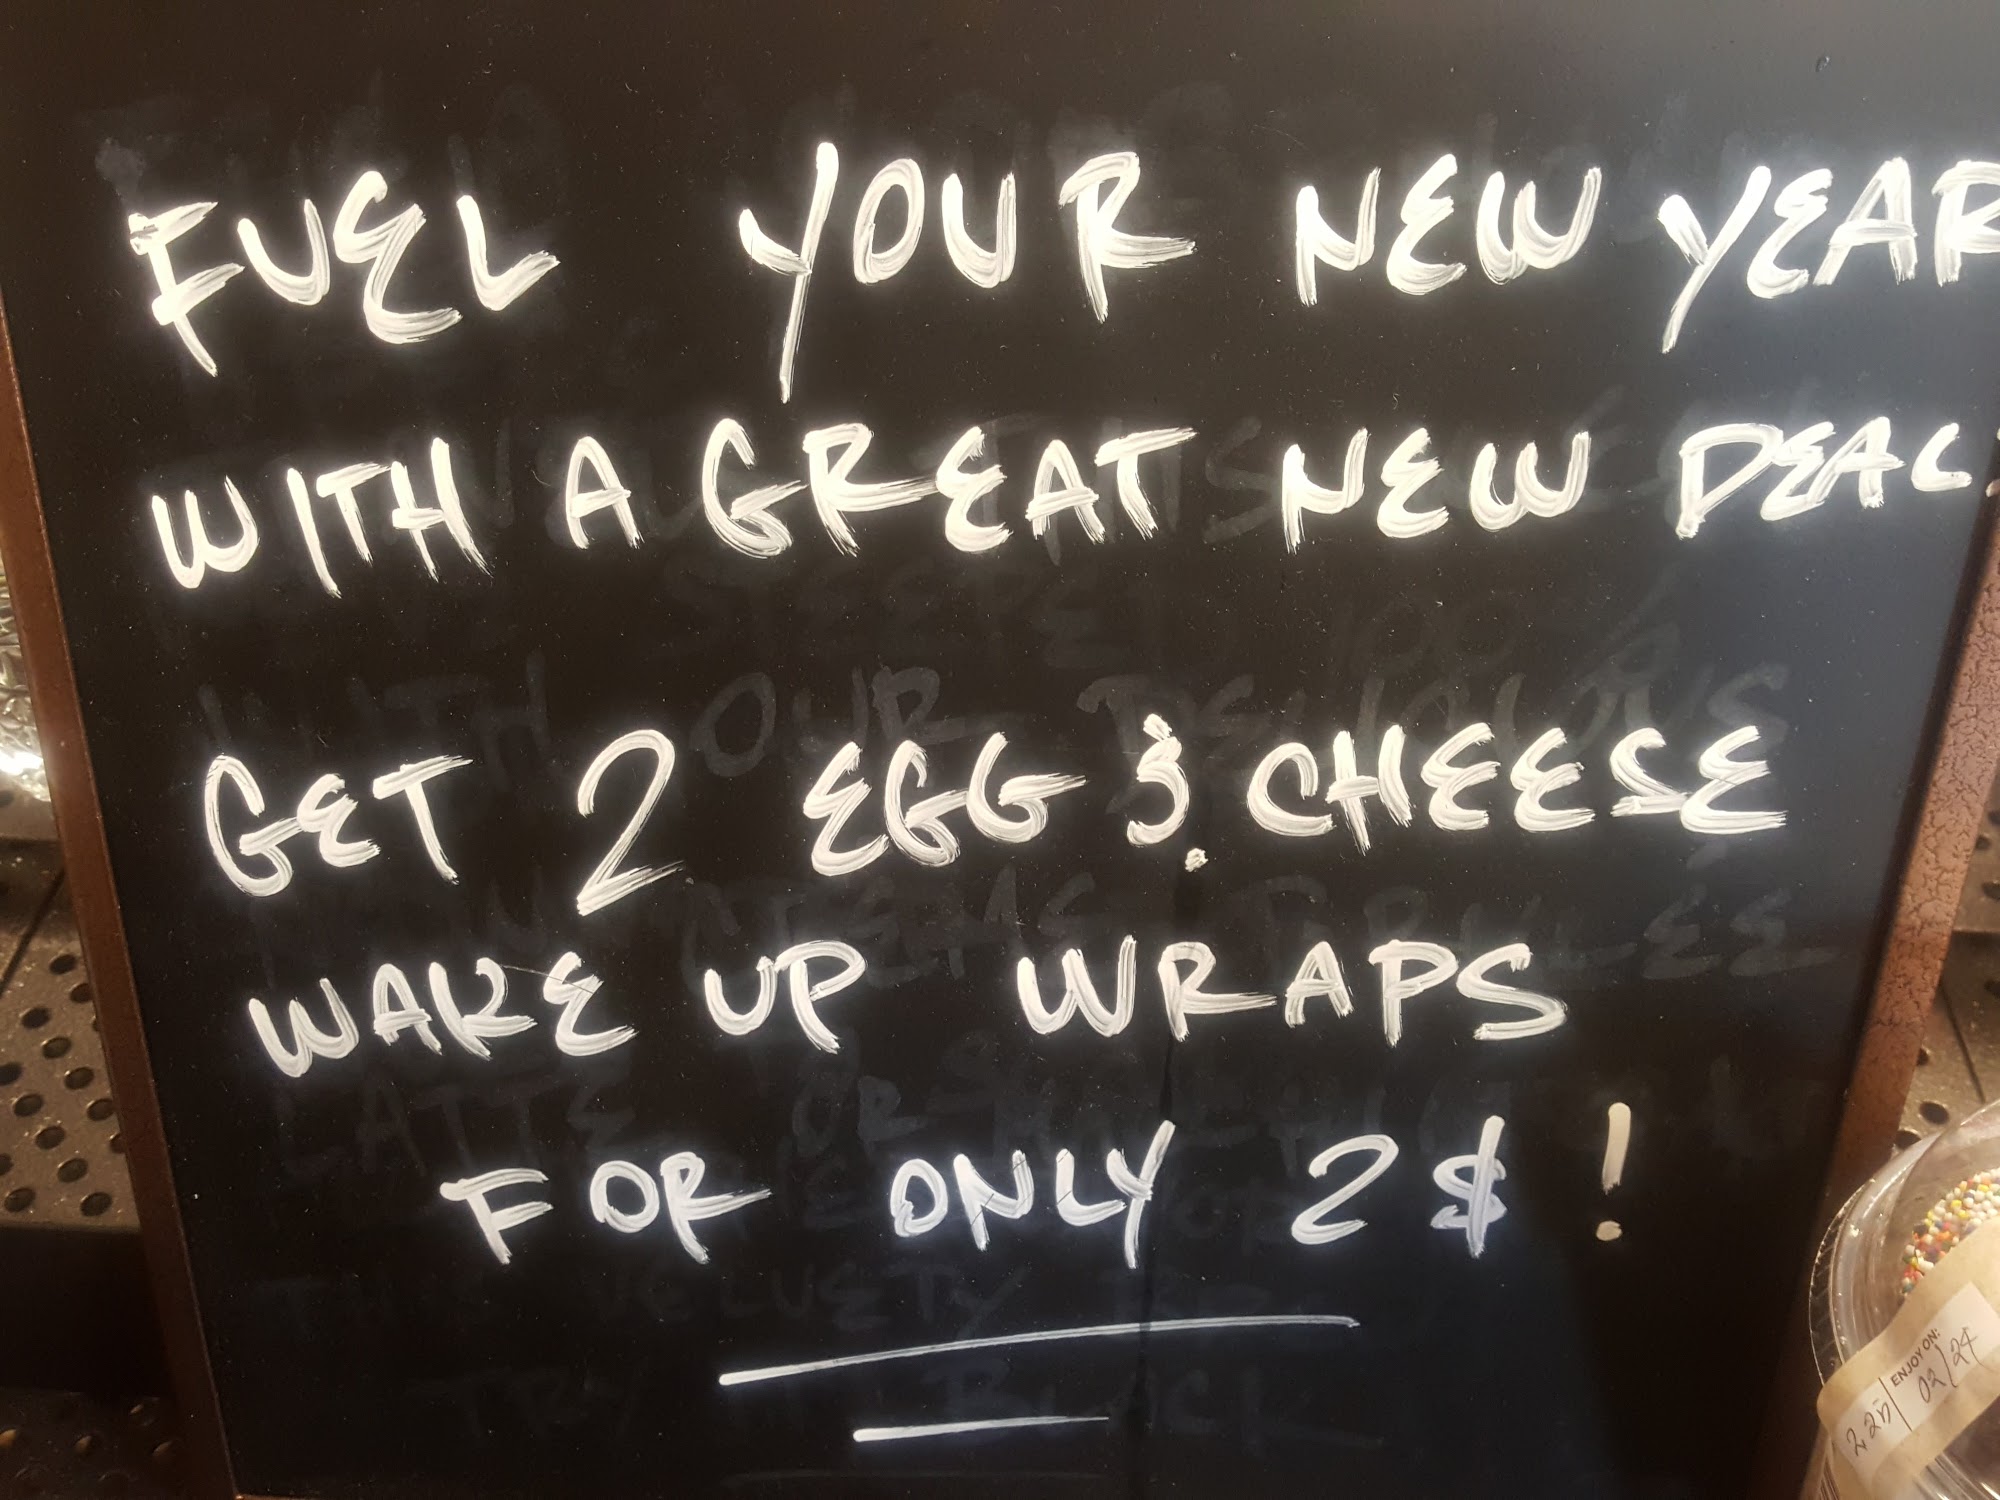 FUEL YOUR NEW YEAR
WITH A GREAT NEW DEAL
GET 2 EGG & CHEESE
WAKE UP WRAPS
FOR ONLY 2$!
ENJOY ON:
02/24